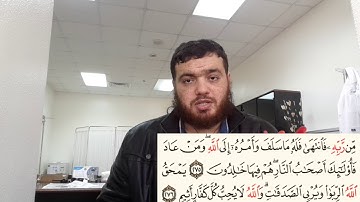 مِّن رَّبِّهِۦ فَٱنتَهَىٰ فَلَهُۥ مَا سَلَفَ وَأَمْرُهُۥٓ إِلَى ٱللَّهِۖ وَمَنْ عَادَ
فَأُو۟لَٰٓئِكَ أَصْحَٰبُ ٱلنَّارِۖ هُمْ فِيهَا خَٰلِدُونَ ٢٧٥ يَمْحَقُ
ٱللَّهُ ٱلرِّبَوٰا۟ وَيُرْبِى ٱلصَّدَقَٰتِۗ وَٱللَّهُ لَا يُحِبُّ كُلَّ كَفَّارٍ أَثِيمٍ ٢٧٦